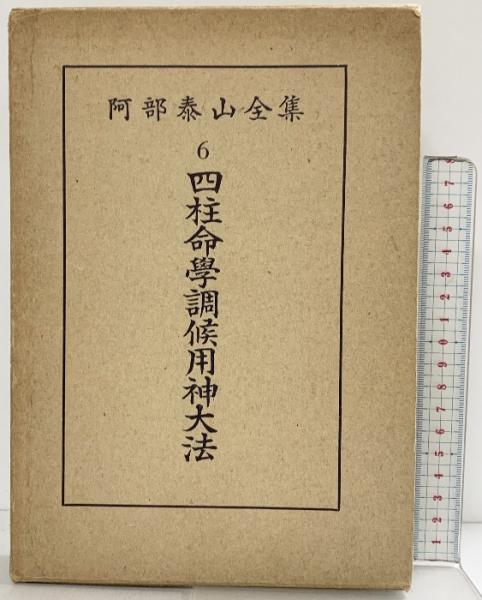 阿部泰山全集
6
四柱命學調候用神大法